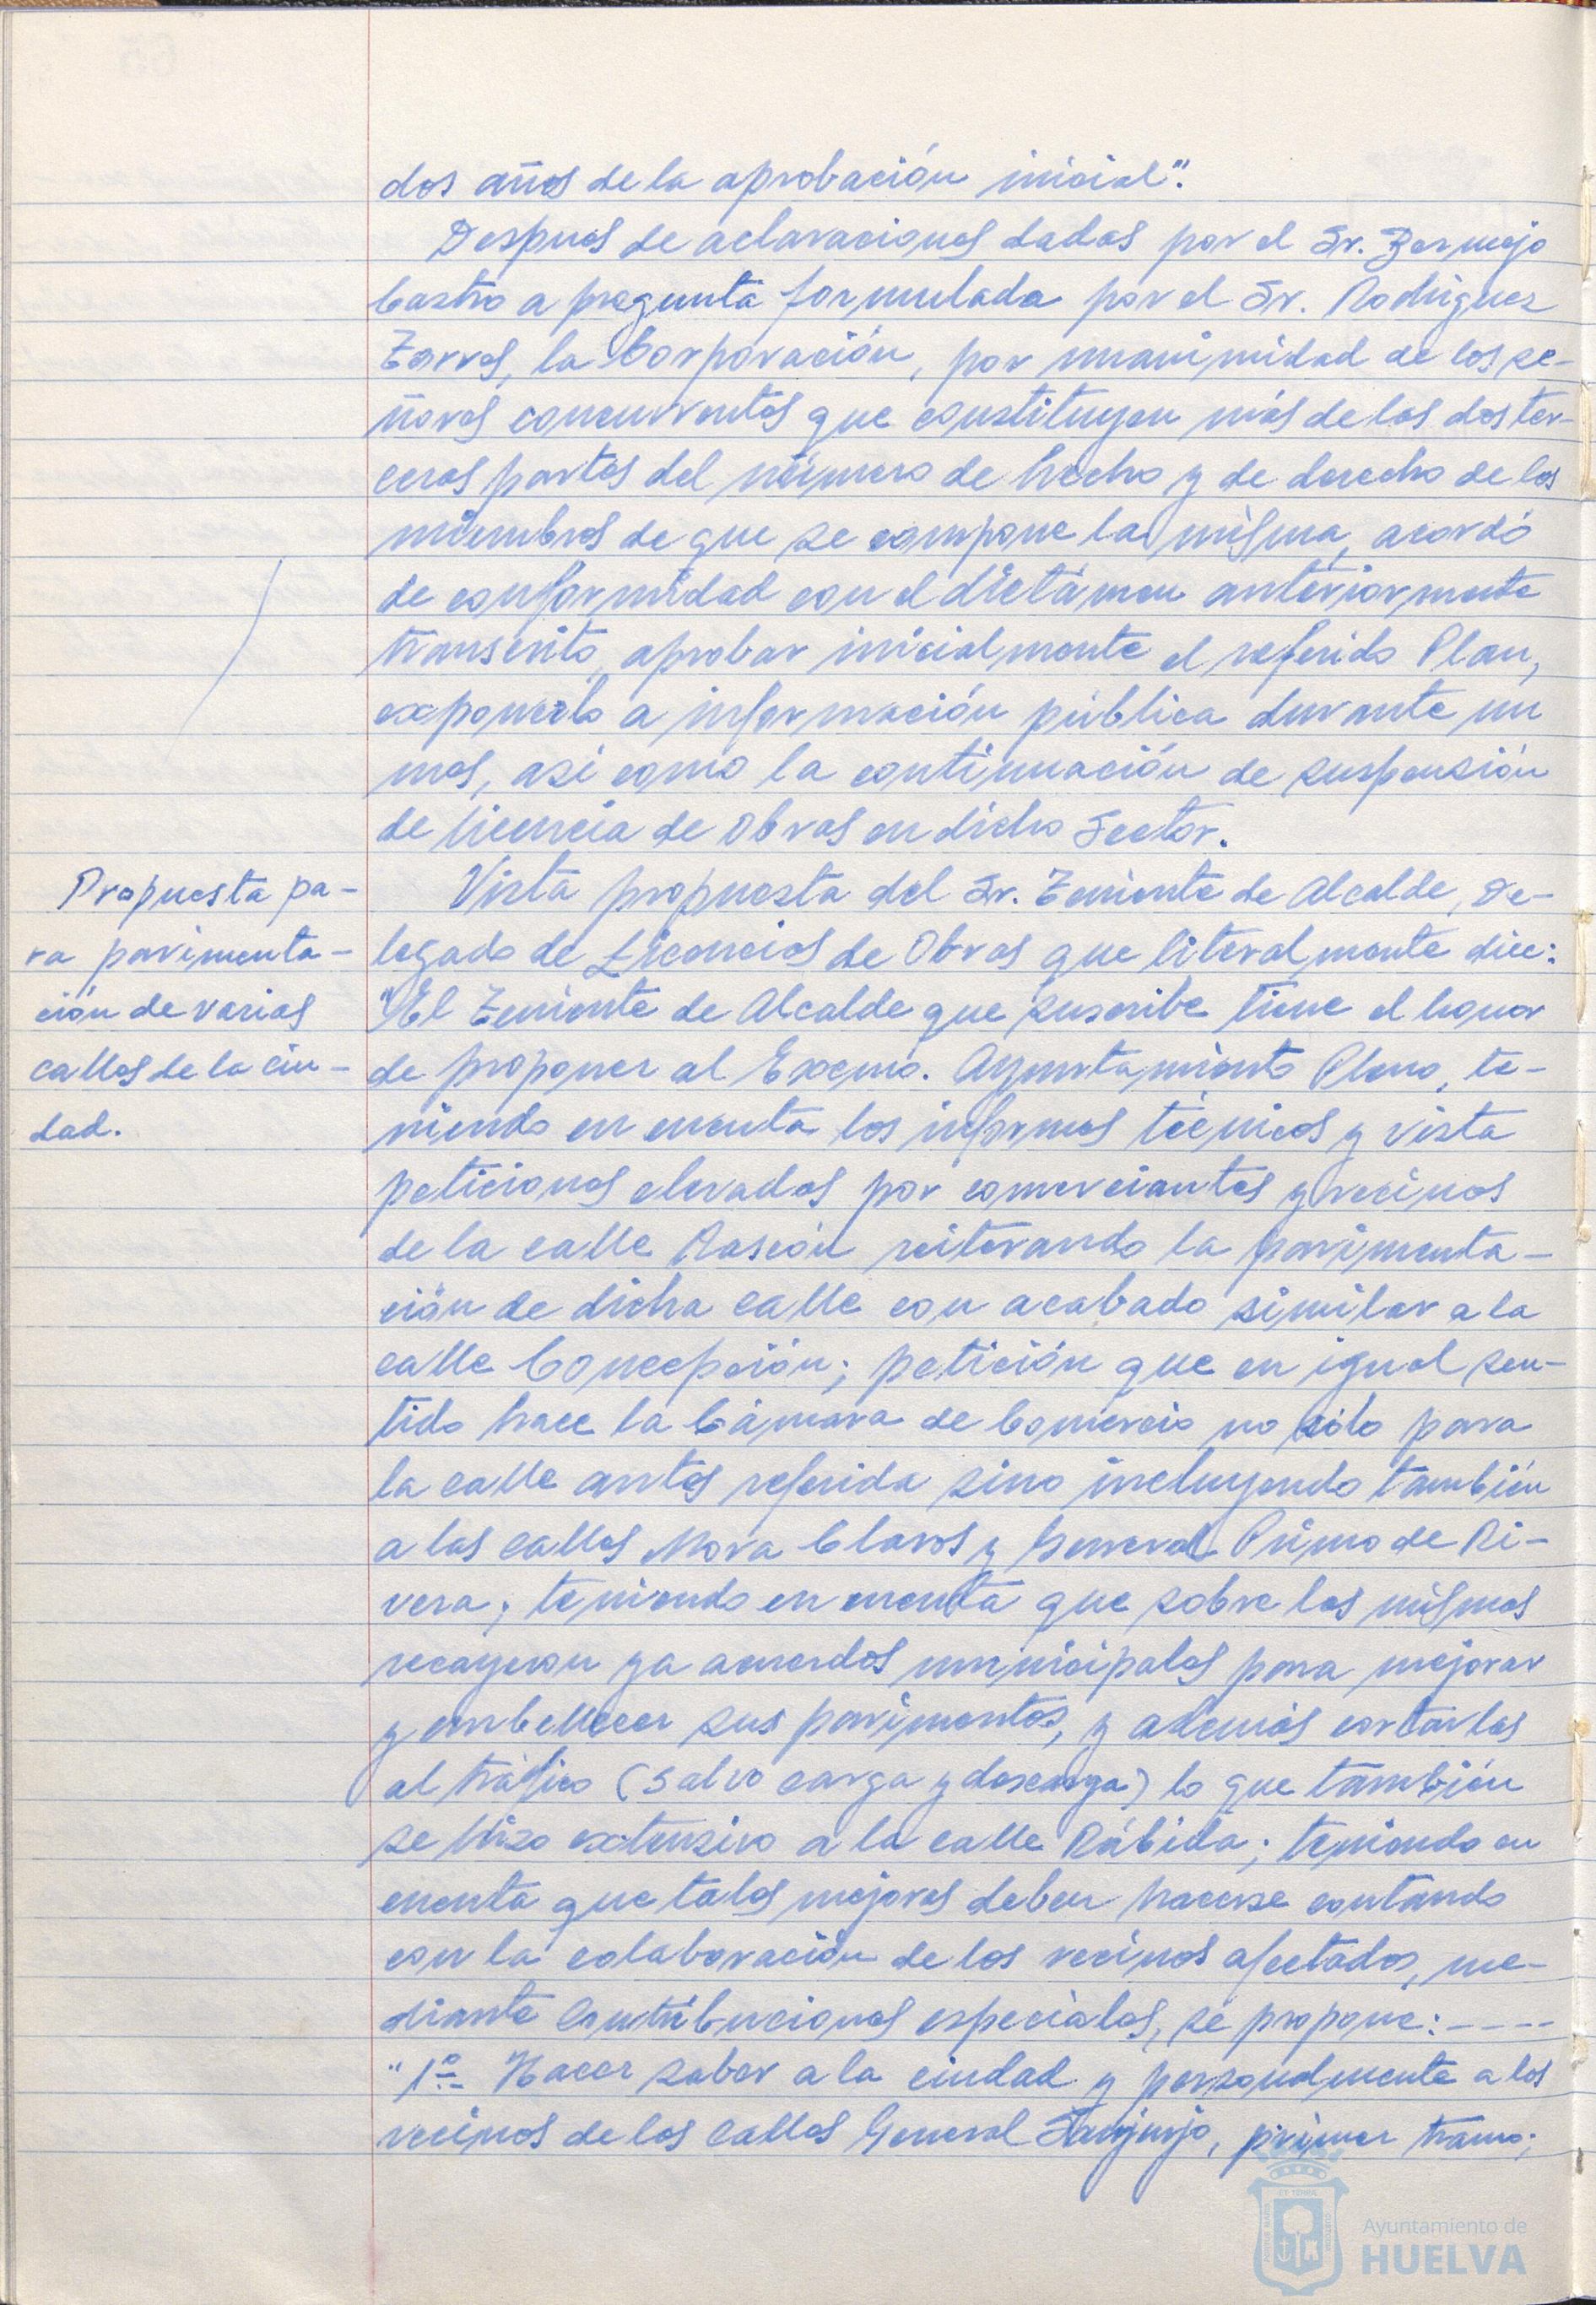 dos años de la aprobación inicial".
Despues de aclaraciones dadas por el Sr. Bermejo
Castro a pregunta formulada por el Sr. Rodriguez
Torres, la Corporación, por unanimidad de los se-
ñores concurrentes que constituyen más de las dos ter-
ceras partes del número de hecho y de derecho de los
miembros de que se compone la misma, acordó
de conformidad con el dictámen anteriormente
transcrito, aprobar inicialmente el referido Plan,
exponerlo a información pública durante un
mes, asi como la continuación de suspensión
de licencia de obras en dicho Sector.
Propuesta pa-
ra pavimenta-
ción de varias
calles de la ciu-
dad.
Vista propuesta del Sr. Teniente de Alcalde, De-
legado de Licencias de Obras que literalmente dice:
"El Teniente de Alcalde que suscribe tiene el honor
de proponer al Excmo. Ayuntamiento Pleno, te-
niendo en cuenta los informes técnicos y vista
peticiones elevadas por comerciantes y vecinos
de la calle Rascón reiterando la pavimenta-
ción de dicha calle con acabado similar a la
calle Concepción; petición que en igual sen-
tido hace la Cámara de Comercio no sólo para
la calle antes referida sino incluyendo también
a las calles Mora Claros y General Primo de Ri-
vera; teniendo en cuenta que sobre las mismas
recayeron ya acuerdos municipales para mejorar
y embellecer sus pavimentos, y además cortarlas
al tráfico (salvo carga y descarga) lo que también
se hizo extensivo a la calle Rábida; teniendo en
cuenta que tales mejoras deben hacerse contando
con la colaboración de los vecinos afectados, me-
diante Contribuciones especiales, se propone: ----
"1º.- Hacer saber a la ciudad y personalmente a los
vecinos de las calles General Sanjurjo, primer tramo;
Ayuntamiento de
HUELVA